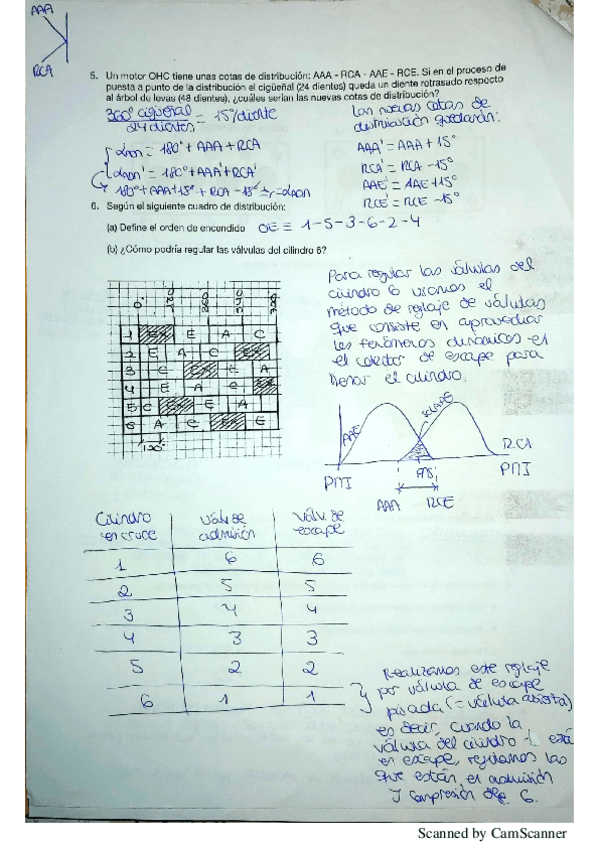 AAA
RCA
5. Un motor OHC tiene unas cotas de distribución: AAA - RCA - AAE - RCE. Si en el proceso de
puesta a punto de la distribución el cigüeñal (24 dientes) queda un diente rotrasado respecto
al árbol de levas (48 dientes), ¿cuáles serían las nuevas cotas de distribución?
360° cigüeñal
24 dientes
= 15°/diente
αADM = 180° + AAA + RCA
αADM' = 180° + AAA' + RCA'
180° + AAA + 15° + RCA - 15° = αADM
Las nuevas cotas de
distribución quedarán:
AAA' = AAA + 15°
RCA' = RCA - 15°
AAE' = AAE + 15°
RCE' = RCE - 15°
6. Según el siguiente cuadro de distribución:
(a) Define el orden de encendido OE ≡ 1-5-3-6-2-4
(b) ¿Cómo podría regular las válvulas del cilindro 6?
0° 180 360 540 720
1 EX E A C
2 E A C EX
3 C EX E A
4 E A C EX
5 C EX E A
6 A C EX E
120°
Para regular las válvulas del
cilindro 6 usamos el
método de reglaje de válvulas
que consiste en aprovechar
los fenómenos dinámicos en
el colector de escape para
llenar el cilindro.
AAE
SOLAPE
RCA
PMI
PMS
PMI
AAA RCE
Cilindro
en cruce
Válv. de
admisión
Válv. de
escape
1 6 6
2 5 5
3 4 4
4 3 3
5 2 2
6 1 1
Realizamos este reglaje
por válvula de escape
pisada (= válvula abierta)
es decir, cuando la
válvula del cilindro 1 está
en escape, regulamos las
que están en admisión
y compresión 6.
Scanned by CamScanner